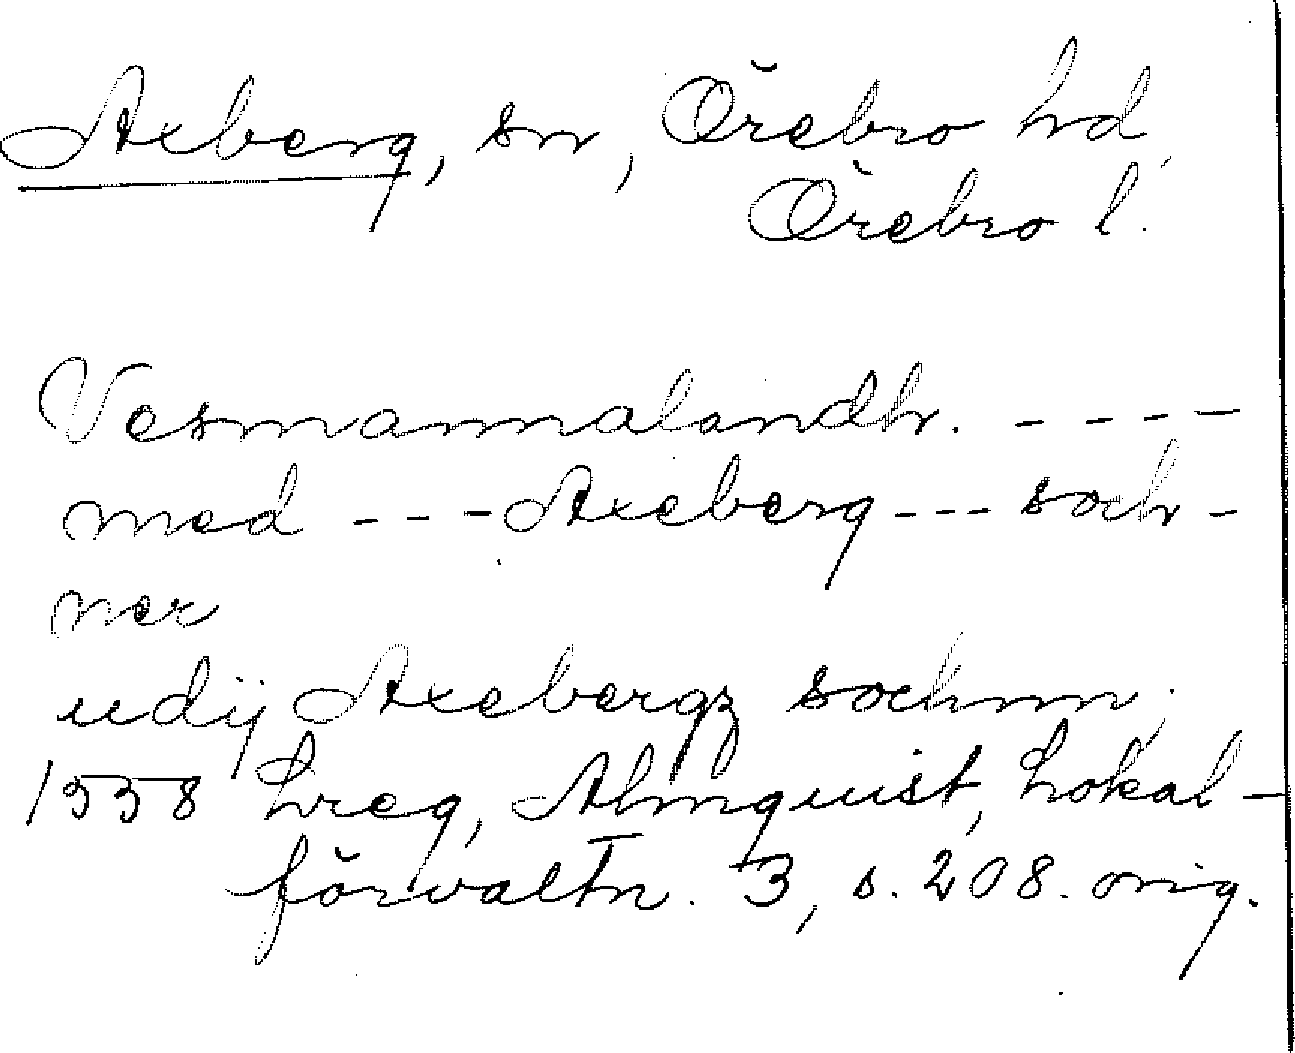 Axberg, sn, Örebro hd,
Örebro l.
Vesmannalandh. ----
med --- Axeberg --- soch-
ner
udij Axebergz sochnn;
1558 Lreg, Almquist, Lokal-
förvaltn. 3, s. 208. orig.